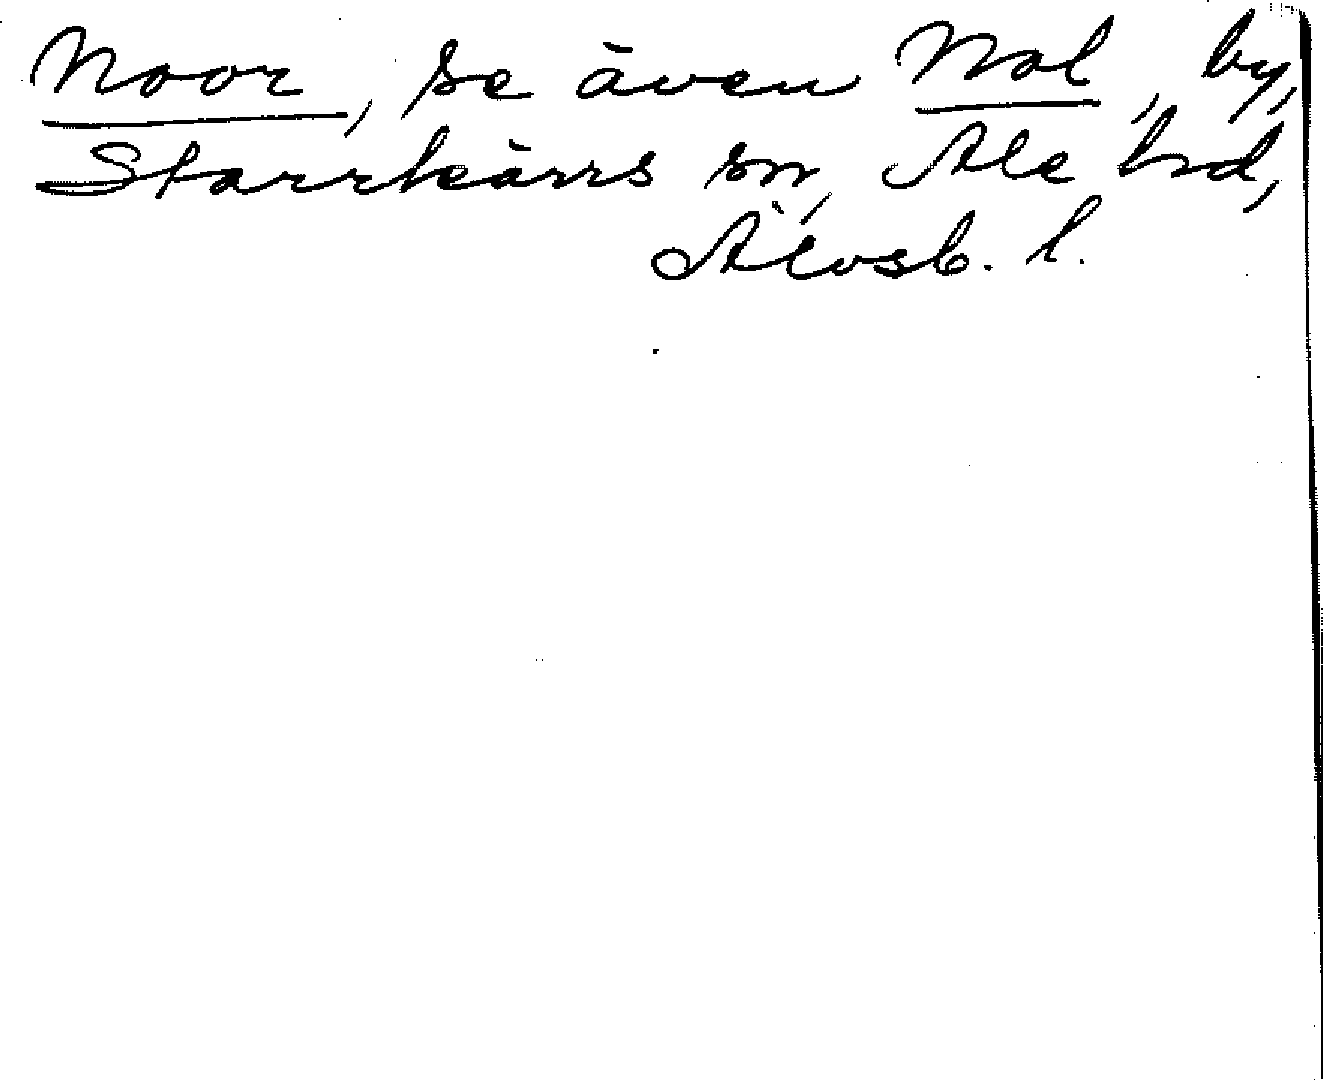 Noor, se även Nol, by,
Starrkärrs sn, Ale hd,
Älvsb. l.